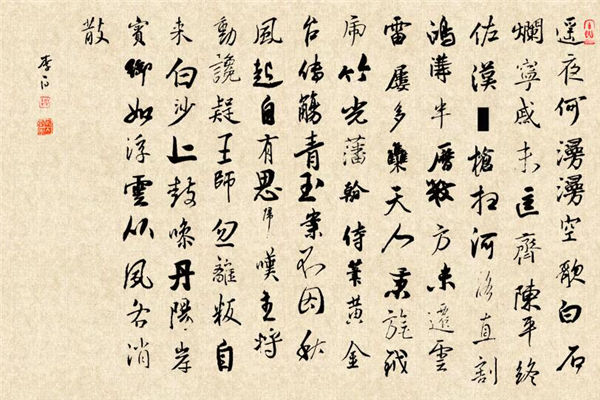 遥夜何漫漫空歌白石
爛寧戚未匡齊陳平終
佐漢■槍扫河洛直割
鴻溝半曆數方未遷雲
雷屢多難天人秉旄鉞
虎竹光藩翰侍筆黄金
台傳觴青玉案不因秋
風起自有思歸嘆主將
動讒疑王師忽離叛自
来白沙上鼓噪丹陽岸
賓御如浮雲從風各消
散
李白